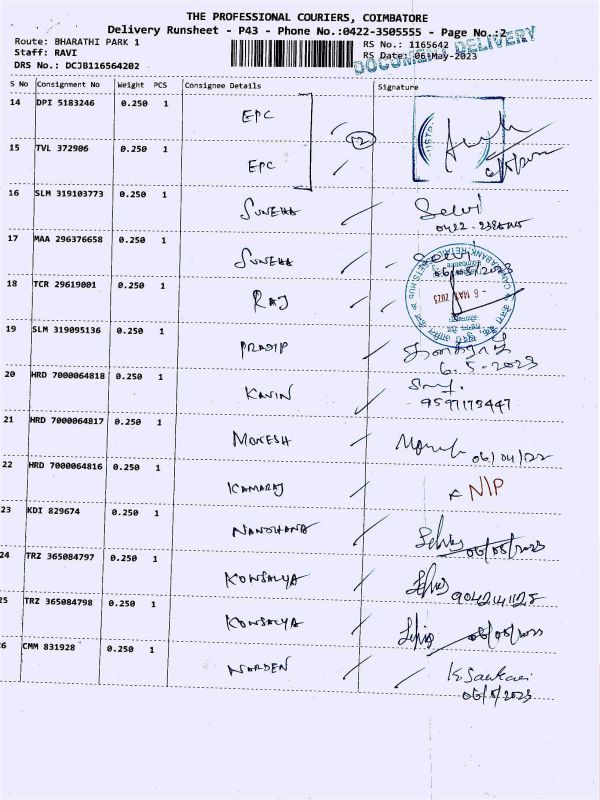 THE PROFESSIONAL COURIERS, COIMBATORE
Delivery Runsheet - P43 - Phone No.:0422-3505555 - Page No.:2
Route: BHARATHI PARK 1 RS No.: 1165642
Staff: RAVI RS Date: 06-May-2023
DOCUMENT DELIVERY
DRS No.: DCJB116564202
S No Consignment No Weight PCS Consignee Details Signature
14 DPI 5183246 0.250 1 EPC
12
15 TVL 372906 0.250 1 EPC
16 SLM 319103773 0.250 1 SUNEHA Selvi
0422-
17 MAA 296376658 0.250 1 SUNEHA Selvi
06/05/2023
18 TCR 29619001 0.250 1 RAJ
CANARA BANK RETAIL ASSETS HUB
- 6 MAY 2023
19 SLM 319095136 0.250 1 PRADIP
6.5-2023
20 HRD 7000064818 0.250 1 KAVIN
9597175447
21 HRD 7000064817 0.250 1 MOKESH 06/04/22
22 HRD 7000064816 0.250 1 KAMARAJ NIP
23 KDI 829674 0.250 1 NANDHANA 06/05/2023
24 TRZ 365084797 0.250 1 KONSALYA 9042141125
25 TRZ 365084798 0.250 1 KONSALYA
26 CMM 831928 0.250 1 NORDEN K. Sankari
06/5/2023